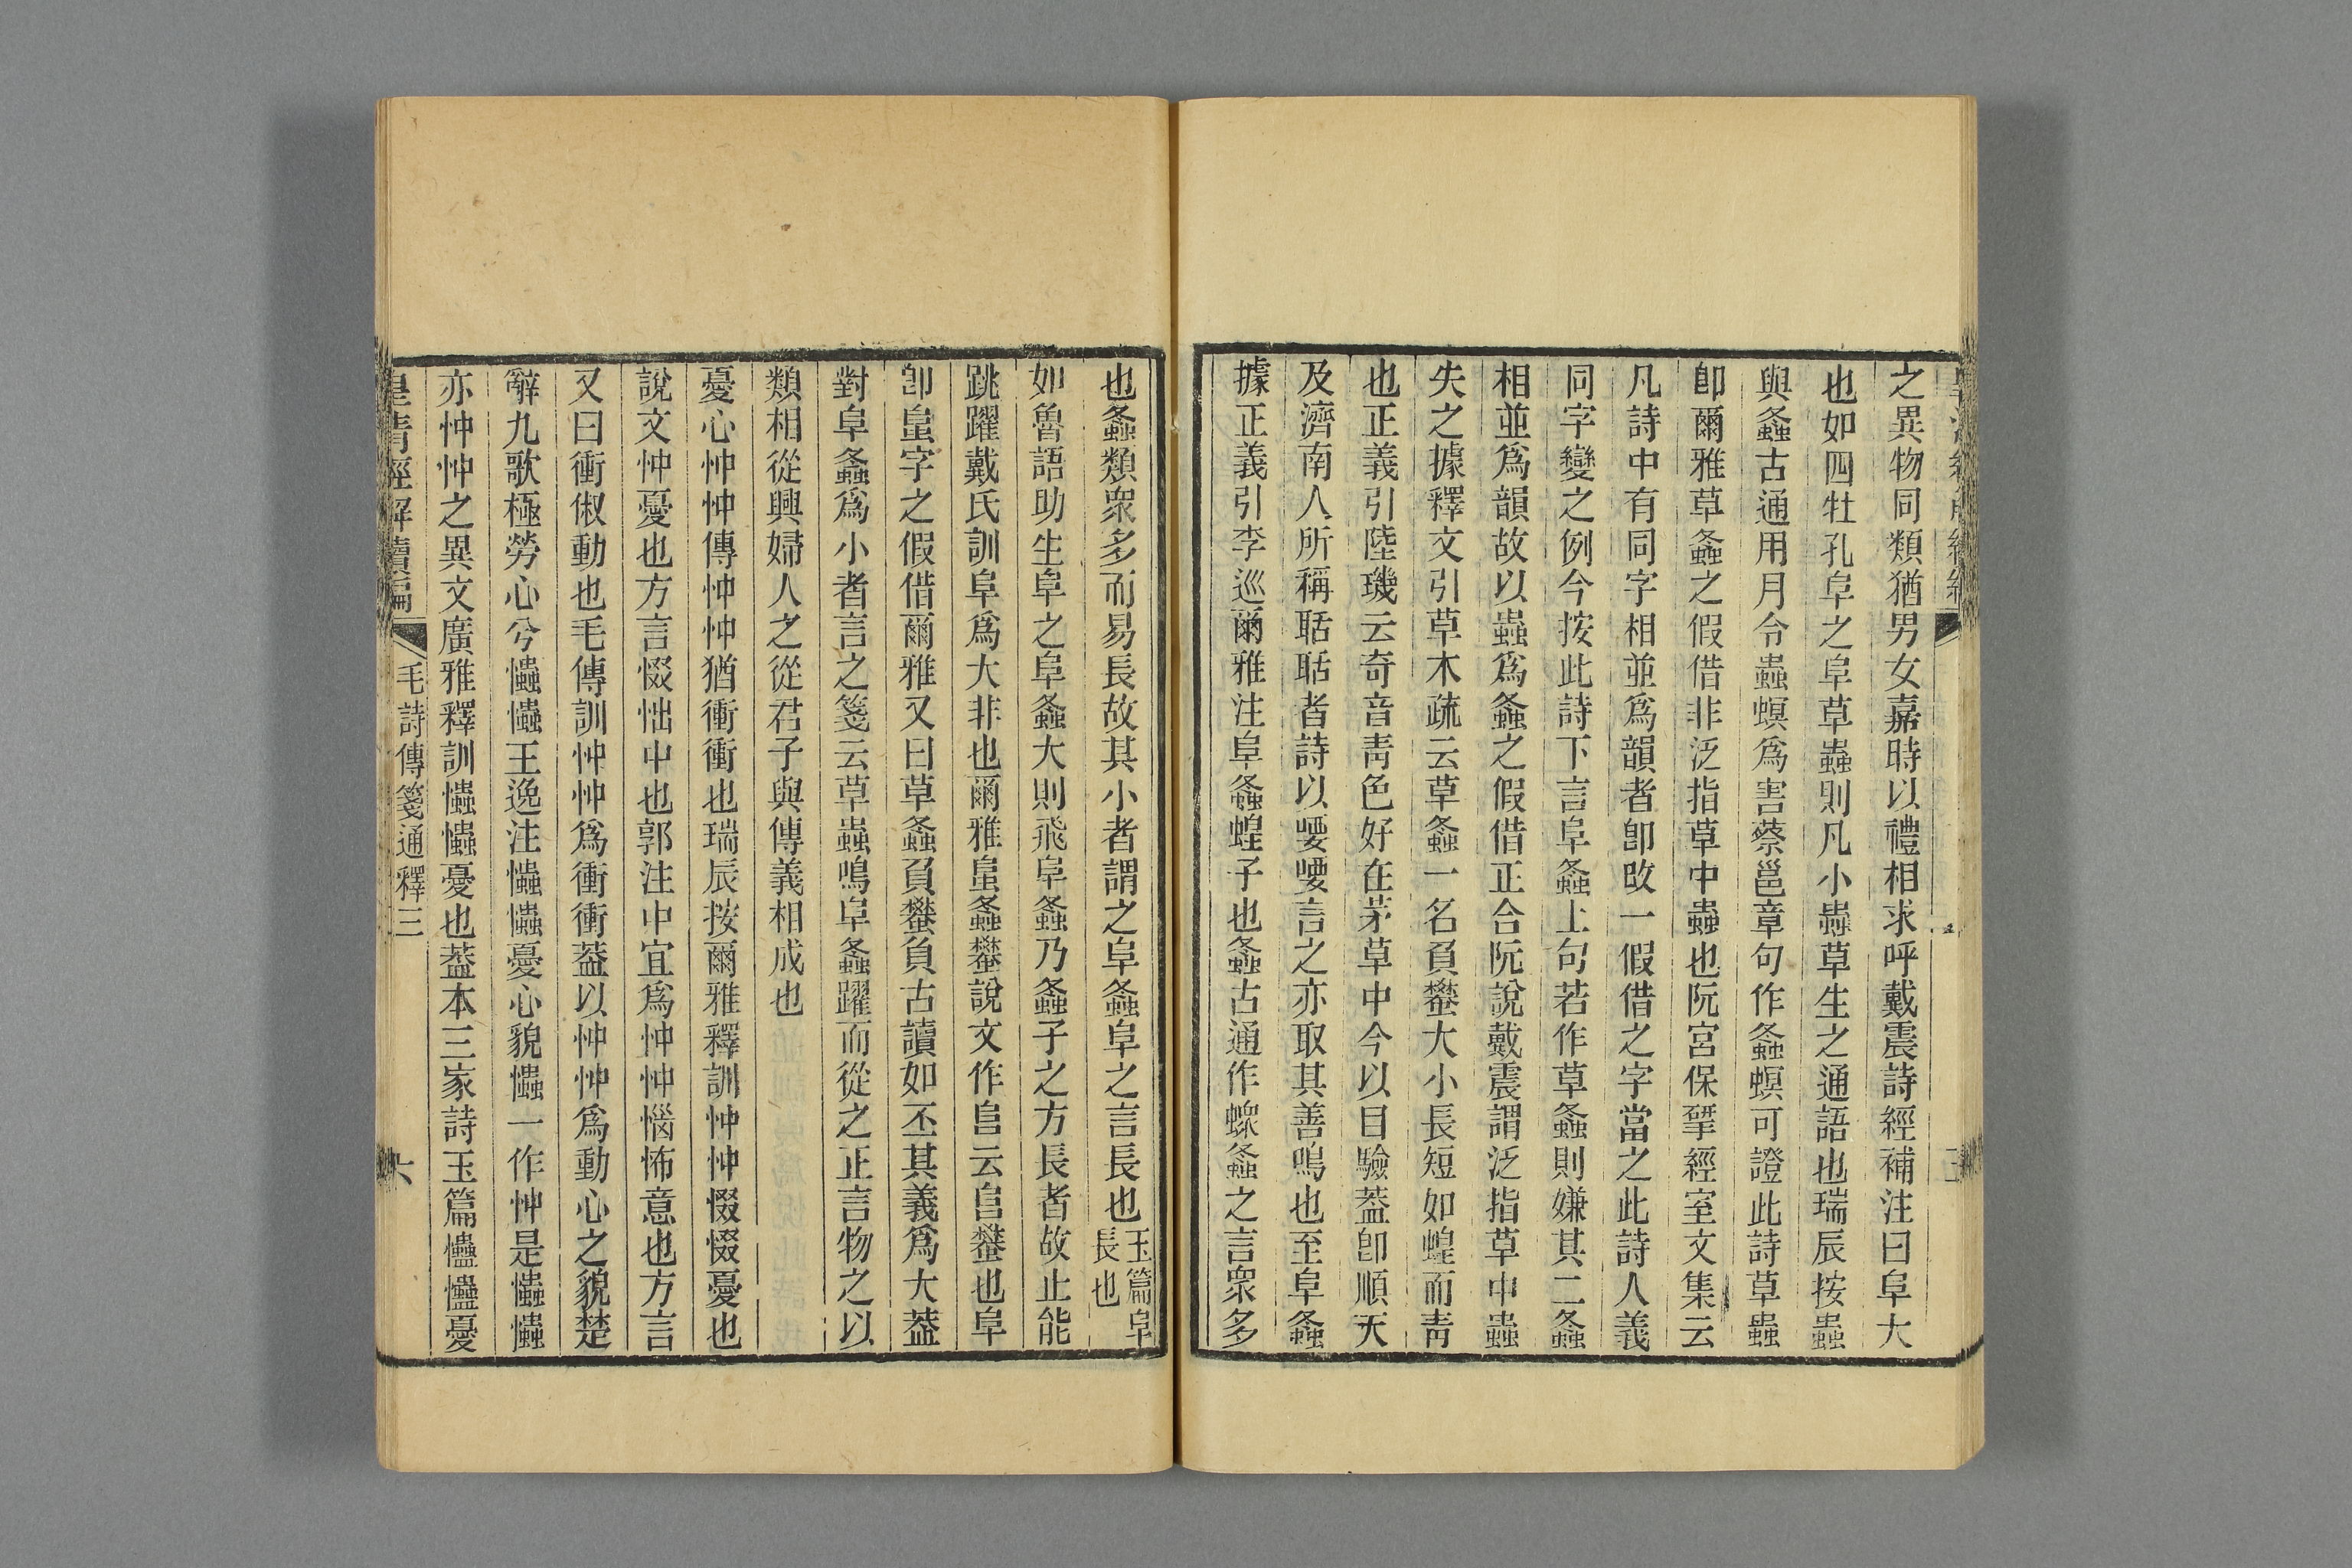 之異物同類猶男女嘉時以禮相求呼戴震詩經補注曰阜大
也如四牡孔阜之阜草蟲則凡小蟲草生之通語也瑞辰按蟲
與螽古通用月令蟲螟爲害蔡邕章句作螽螟可證此詩草蟲
卽爾雅草螽之假借非泛指草中蟲也阮宮保揅經室文集云
凡詩中有同字相並爲韻者卽改一假借之字當之此詩人義
同字變之例今按此詩下言阜螽上句若作草螽則嫌其二螽
相並爲韻故以蟲爲螽之假借正合阮說戴震謂泛指草中蟲
失之據釋文引草木疏云草螽一名負蠜大小長短如蝗而靑
也正義引陸璣云奇音靑色好在茅草中今以目驗葢卽順天
及濟南人所稱聒聒者詩以喓喓言之亦取其善鳴也至阜螽
據正義引李巡爾雅注阜螽蝗子也螽古通作蠓螽之言衆多
也螽類衆多而易長故其小者謂之阜螽阜之言長也玉篇阜長也
如魯語助生阜之阜螽大則飛阜螽乃螽子之方長者故止能
跳躍戴氏訓阜爲大非也爾雅蛗螽蠜說文作𨸏云𨸏蠜也阜
卽蛗字之假借爾雅又曰草螽負蠜負古讀如丕其義爲大葢
對阜螽爲小者言之箋云草蟲鳴阜螽躍而從之正言物之以
類相從興婦人之從君子與傳義相成也
憂心忡忡傳忡忡猶衝衝也瑞辰按爾雅釋訓忡忡惙惙憂也
說文忡憂也方言惙怞中也郭注中宜爲忡忡惱怖意也方言
又曰衝俶動也毛傳訓忡忡爲衝衝葢以忡忡爲動心之貌楚
辭九歌極勞心兮㦀㦀王逸注㦀㦀憂心貌㦀一作忡是㦀㦀
亦忡忡之異文廣雅釋訓㦀㦀憂也葢本三家詩玉篇爞爞憂
皇清經解續編
毛詩傳箋通釋三
六